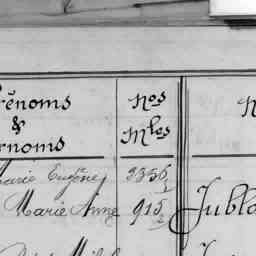 rénoms Nos N
&
rnoms Mles
Marie Eugène 3356
Marie Anne 915 Jubla